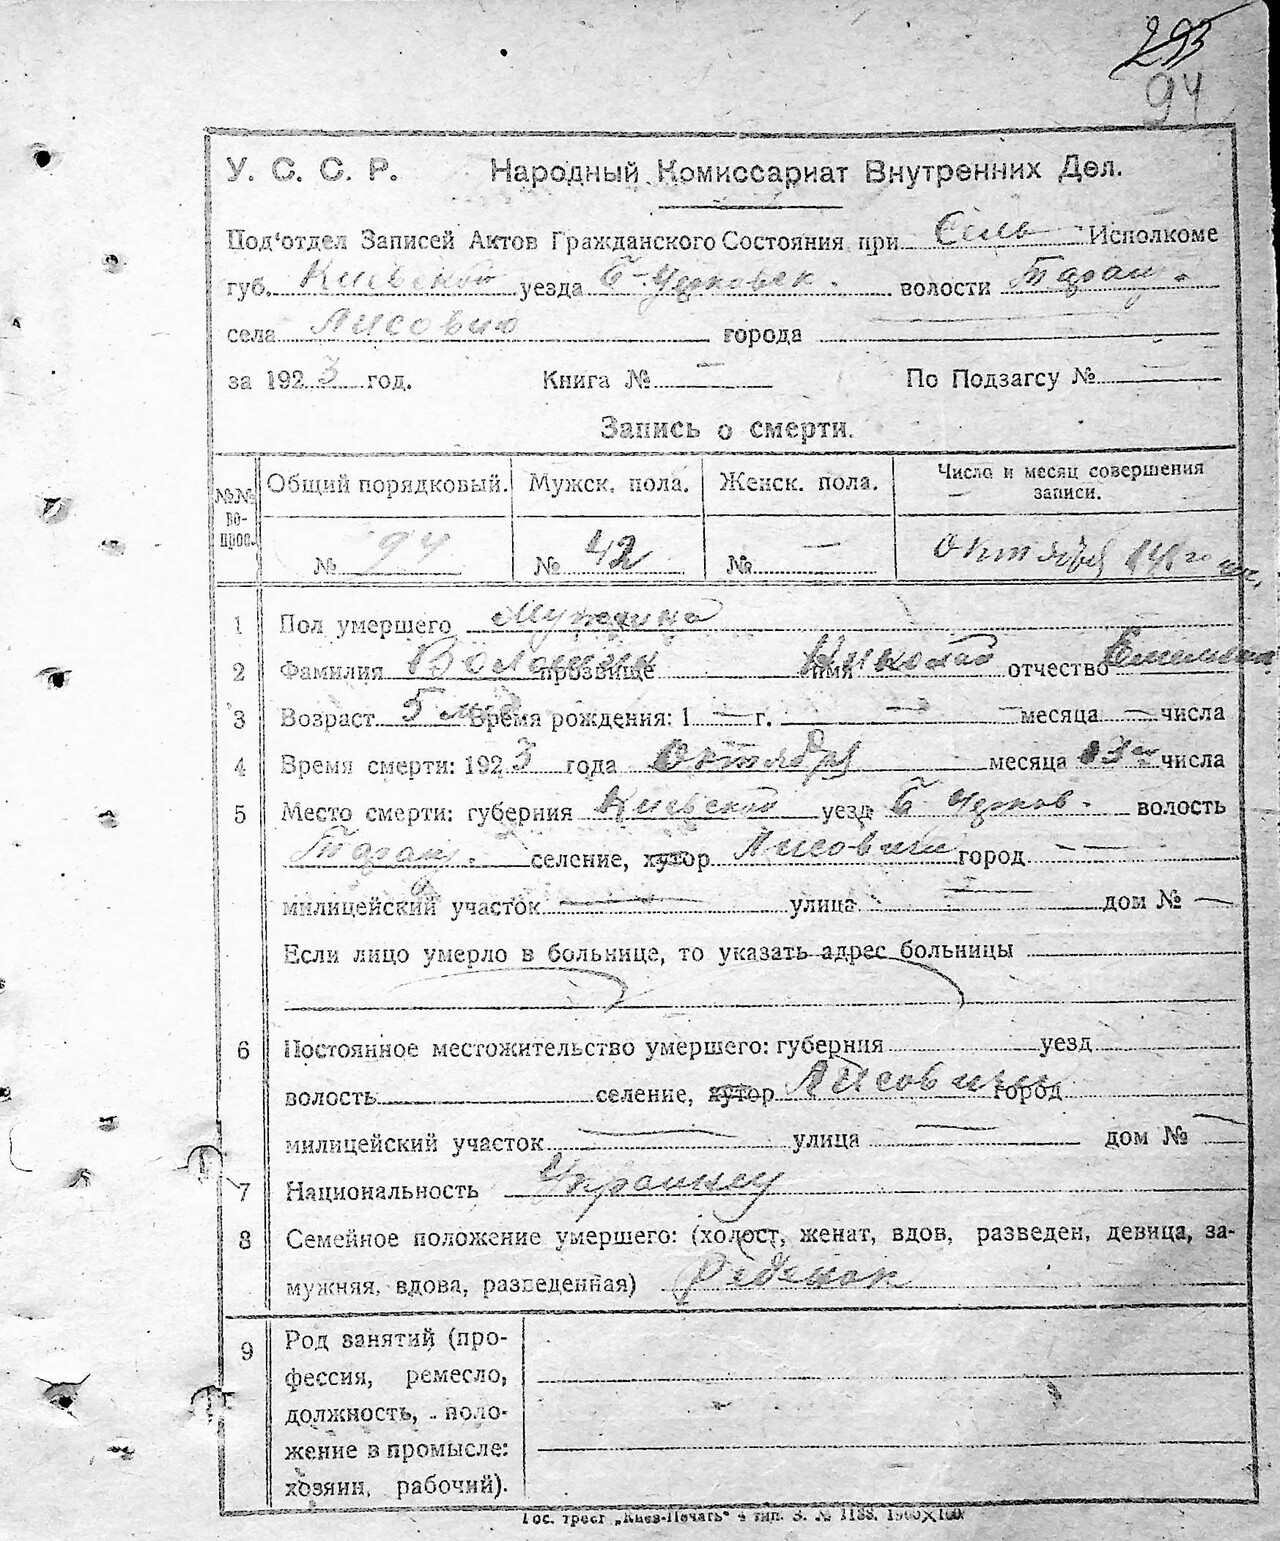 293
94
У. С. С. Р. Народный Комиссариат Внутренних Дел.
Под‘отдел Записей Актов Гражданского Состояния при Сель Исполкоме
губ. Киевской уезда Б-Церковск. волости Таращ.
села Лисовичи города
за 1923 год. Книга № — По Подзагсу № —
Запись о смерти.
№№ вопрос. Общий порядковый. Мужск. пола. Женск. пола. Число и месяц совершения записи.
№ 94 № 42 № — Октября 14го
1 Пол умершего Мужчина
2 Фамилия прозвище имя Николай отчество
3 Возраст 5 Время рождения: 1 — г. — месяца — числа
4 Время смерти: 1923 года Октября месяца 13 числа
5 Место смерти: губерния Киевской уезд Б-Церков. волость
Таращ. селение, хутор Лисовичи город — —
милицейский участок — улица — дом № —
Если лицо умерло в больнице, то указать адрес больницы
6 Постоянное местожительство умершего: губерния уезд
волость селение, хутор Лисовичи город
милицейский участок — улица — дом № —
7 Национальность Украинец
8 Семейное положение умершего: (холост, женат, вдов, разведен, девица, за-
мужняя, вдова, разведенная) Ребенок
9 Род занятий (про-
фессия, ремесло,
должность, поло-
жение в промысле:
хозяин, рабочий).
Гос. трест „Киев-Печать“ 4 тип. З. № 1188. 1900×100